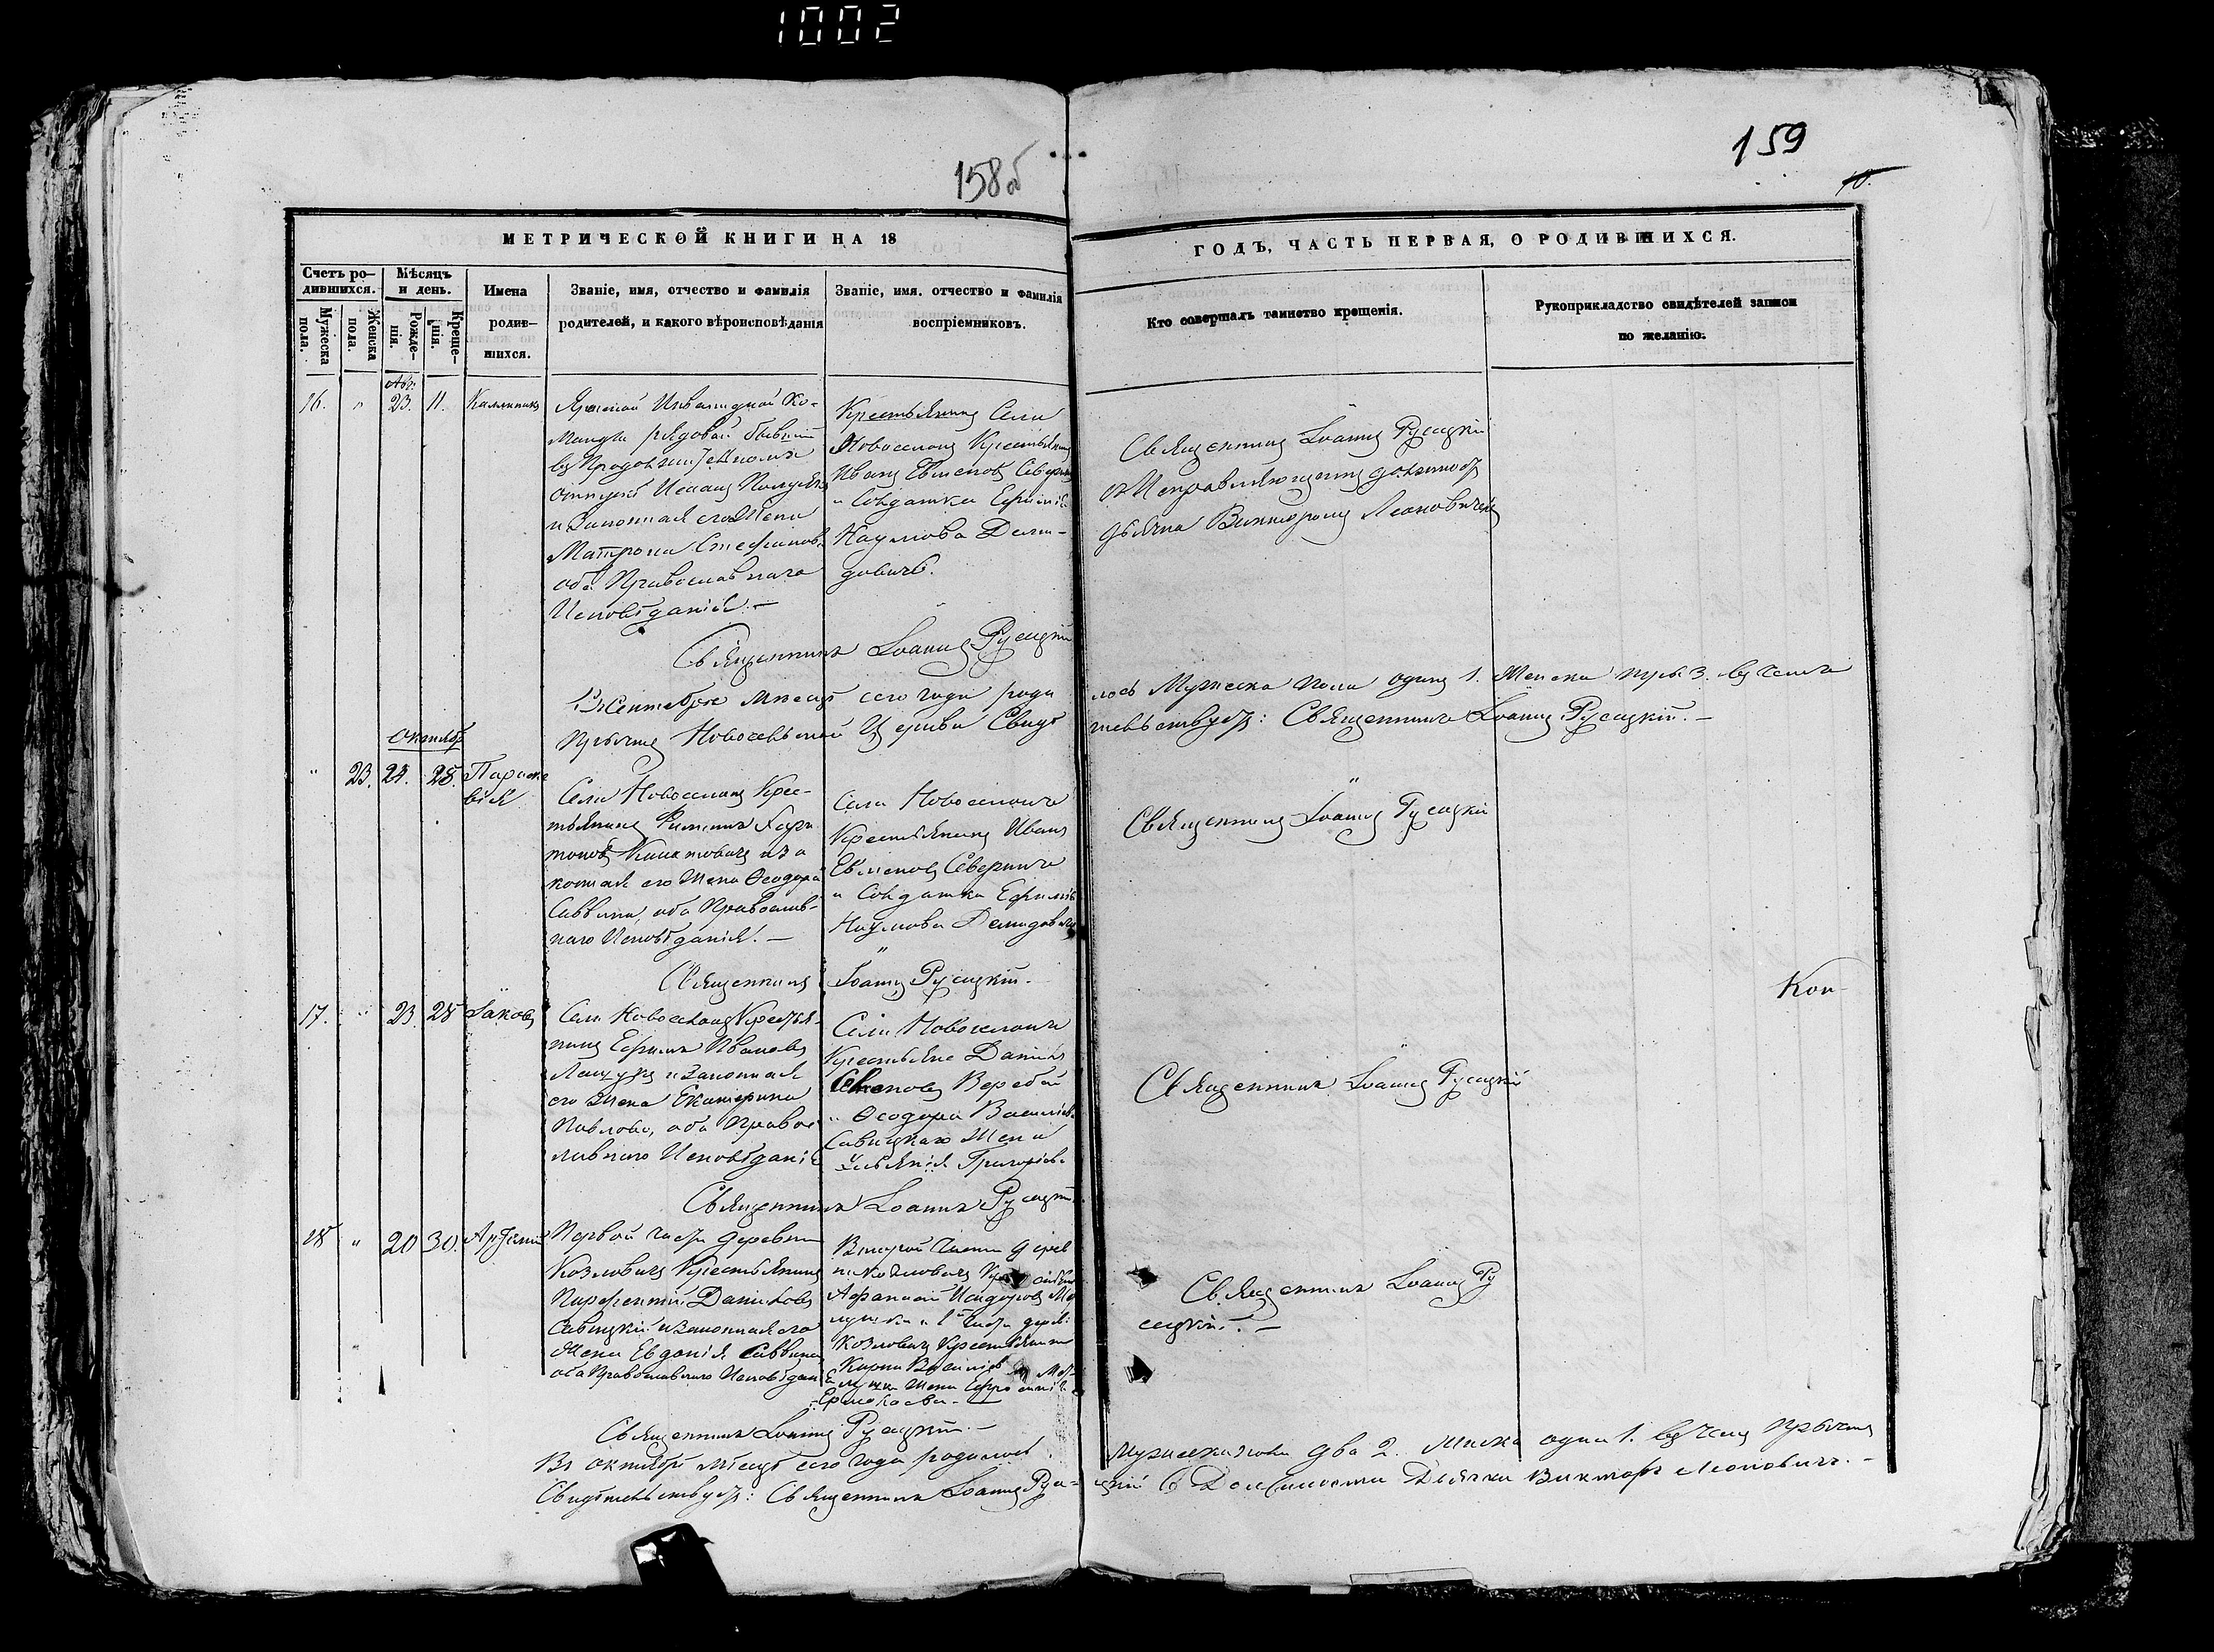 1002
158об
159
10.
МЕТРИЧЕСКОЙ КНИГИ НА 18
ГОДЪ, ЧАСТЬ ПЕРВАЯ, О РОДИВШИХСЯ.
Счетъ ро-
дившихся.
Мужеска
пола.
Женска
пола.
Мѣсяцъ
и день.
Рожде-
нія.
Креще-
нія.
Имена
родив-
шихся.
Званіе, имя, отчество и фамилія
родителей, и какого вѣроисповѣданія
Званіе, имя, отчество и фамилія
воспріемниковъ.
Кто совершалъ таинство крещенія.
Рукоприкладство свидѣтелей записи
по желанію.
16.
"
Авг.
23.
11.
Каллиникъ
Инвалидной Ко-
манды рядовой бывшій
въ
отпуску
и Законная его Жена
Матрона Стефанова
оба Православнаго
Исповѣданія. —
Крестьянинъ Села
Новоселокъ Крестьянинъ
Иванъ Евменовъ
и Солдатка Ефимія
Наумова Деми-
довичъ.
Священникъ Іоаннъ Русецкій
съ Исправляющимъ должность
дьячка Викторомъ Леоновичемъ
Священникъ Іоаннъ Русецкій
Въ Сентябрѣ мѣсяцѣ сего года роди
лось Мужеска пола одинъ 1. Женска три 3. въ чемъ
Новосельской Церкви Свидѣ
тельствуетъ: Священникъ Іоаннъ Русецкій. —
Октябрь
"
23.
24.
28.
Параске
вія
Села Новоселокъ Крес-
тьянинъ Филиппъ Хари
тоновъ и за
конная его Жена Ѳеодора
Саввина, оба Православ-
наго Исповѣданія. —
Села Новоселокъ
Крестьянинъ Иванъ
Евменовъ
и Солдатка Ефимія
Наумова Демидовичъ
Священникъ Іоаннъ Русецкій
Священникъ Іоаннъ Русецкій.
Коп-
17.
"
23.
28
Іаковъ
Села Новоселокъ Крестья-
нинъ Ефимъ Ивановъ
и Законная
его Жена Екатерина
Павлова, оба Правос
лавнаго Исповѣданія
Села Новоселокъ
Крестьяне Даніилъ
Семеновъ Веребей
и Ѳеодора Васильева
Савицкаго Жена
Григорьева
Священникъ Іоаннъ Русецкій
Священникъ Іоаннъ Русецкій
18
"
20
30.
Артемій
Первой части деревни
Козловичъ Крестьянинъ
Парфентій Даниловъ
Савицкій и Законная его
Жена Евдокія Саввина
оба Православнаго Исповѣдан
Второй Части дерев
ни Козловичъ
Афанасій Исидоровъ
и 1й Части дерев:
Козловичъ Крестьянина
Карпа Васильева
Жена Ефросинія
Ермолаева. —
Священникъ Іоаннъ Ру
сецкій. —
Священникъ Іоаннъ Русецкій. —
Въ октябрѣ мѣсяцѣ сего года родилось
мужеска пола два 2. Женска одна 1. въ чемъ
Свидѣтельствуетъ: Священникъ Іоаннъ Русе-
цкій В Должности Дьячка Викторъ Леоновичъ. —